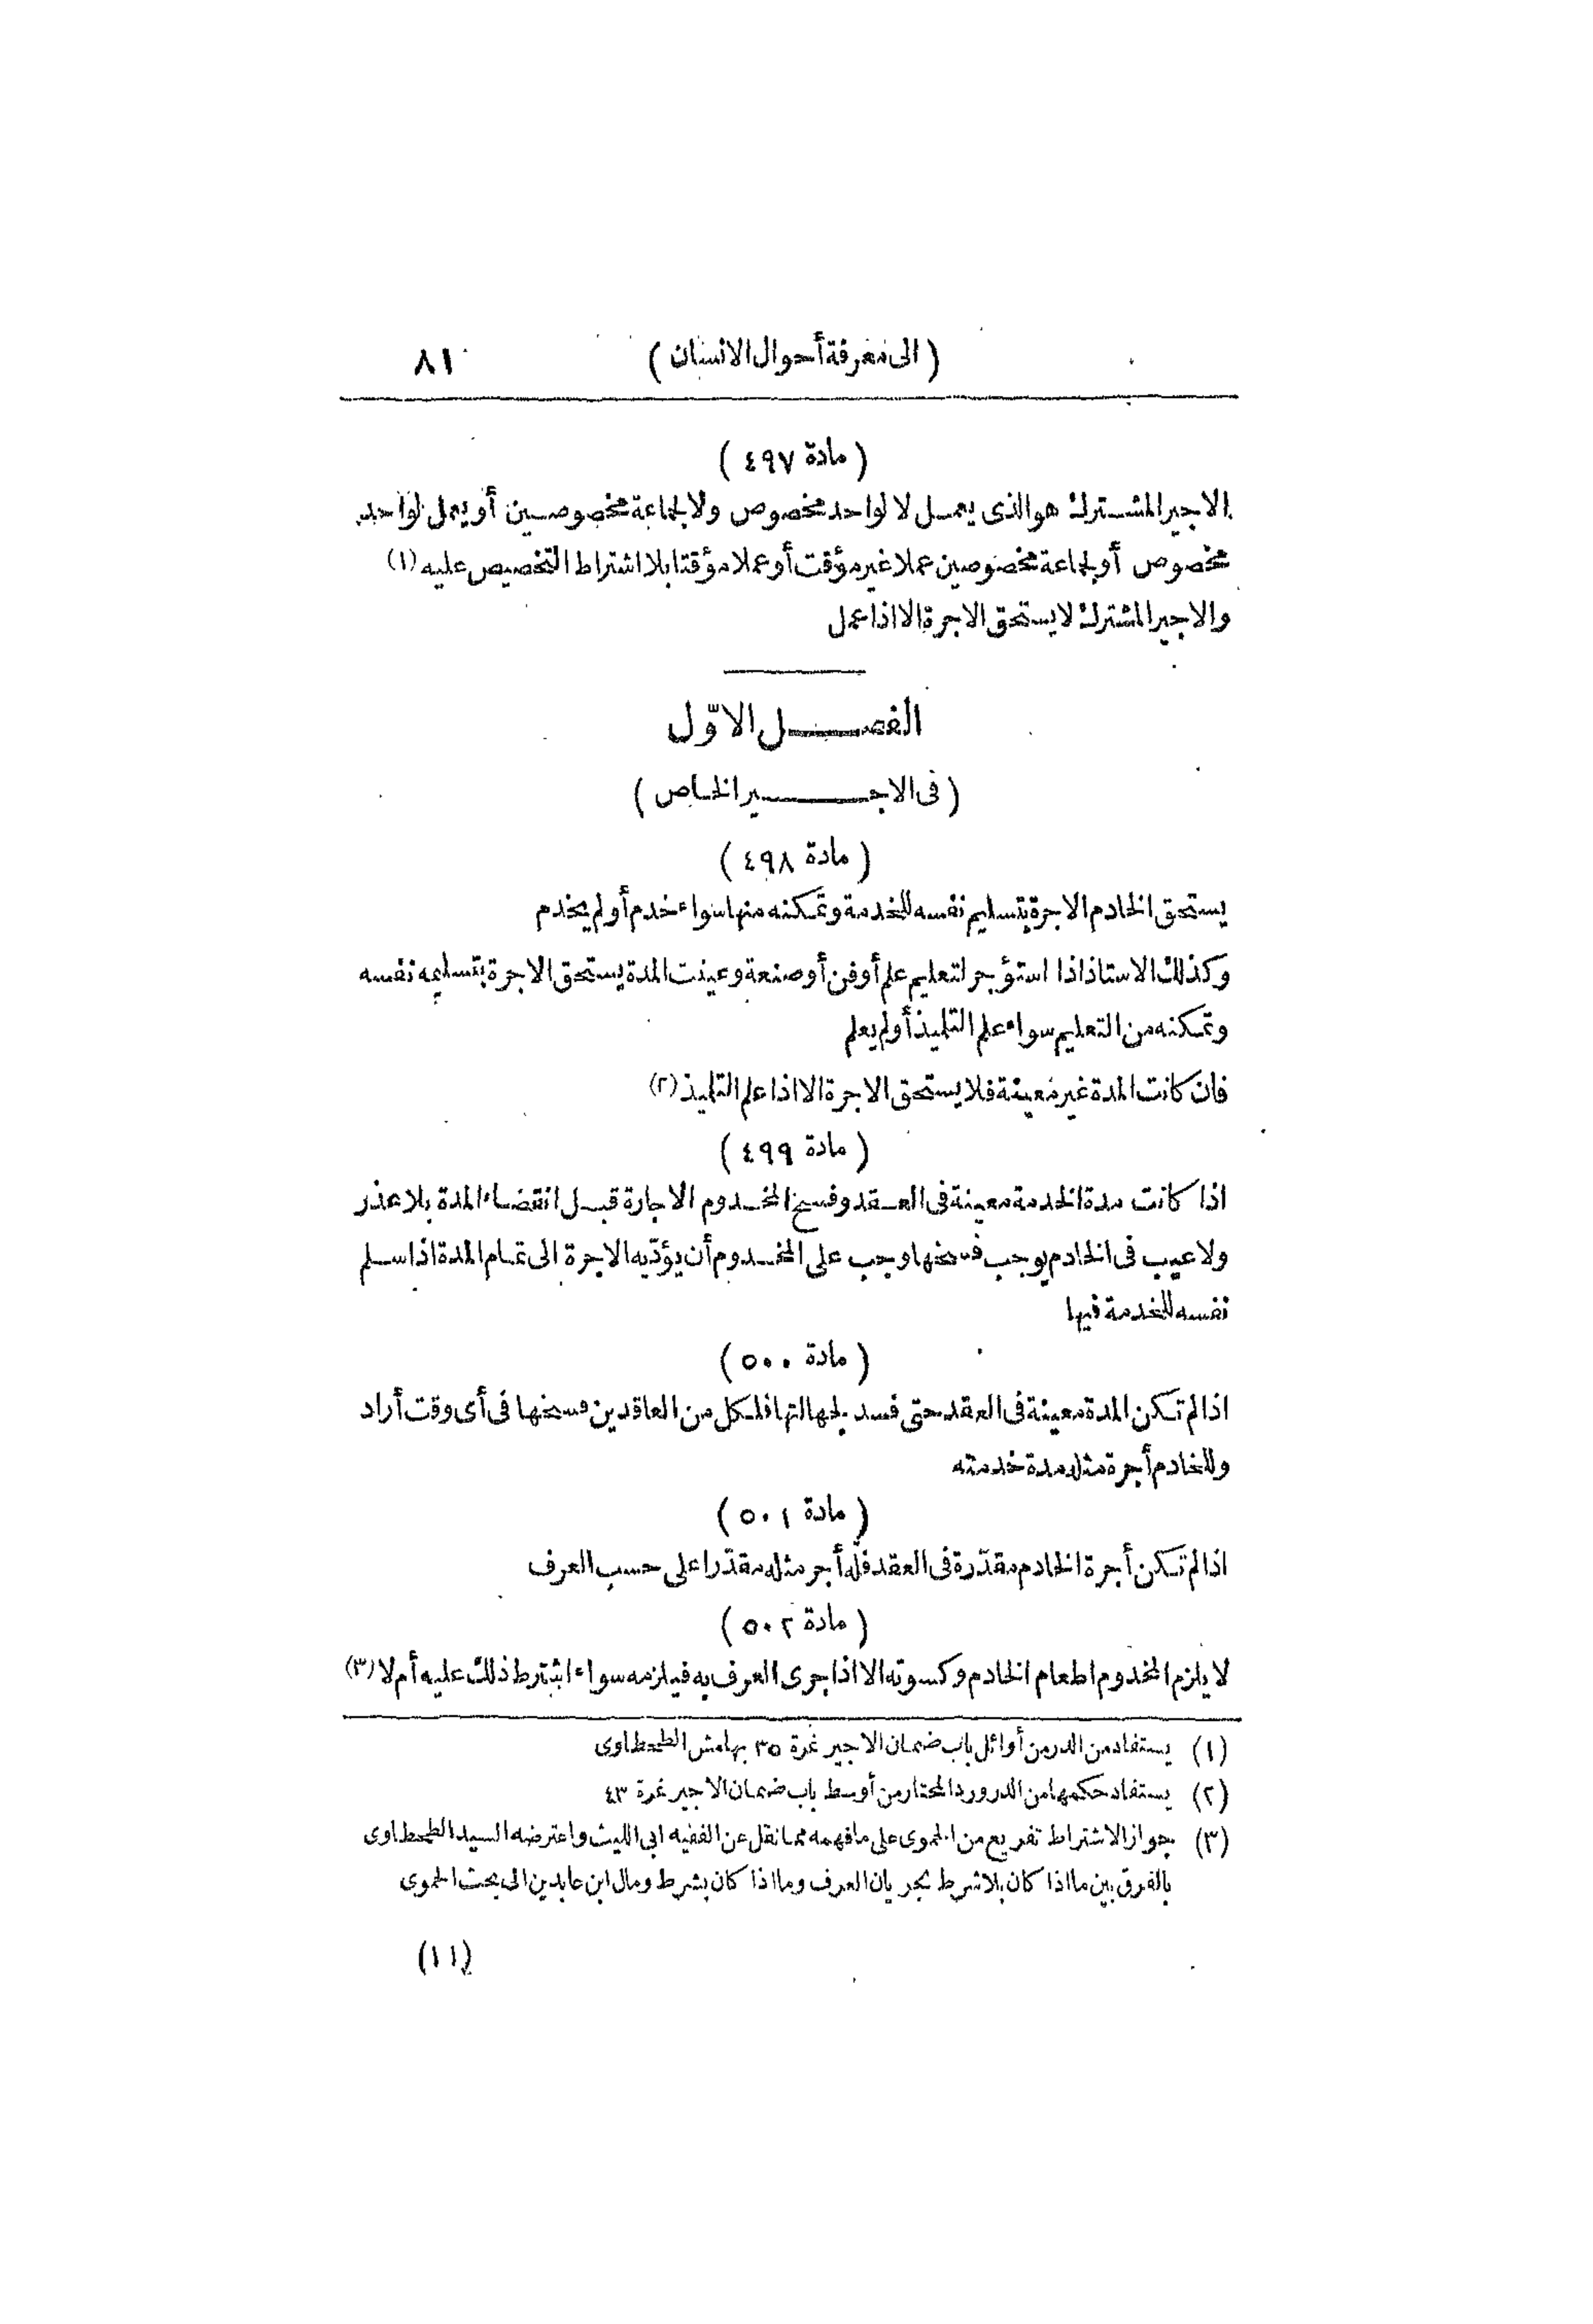 (الى معرفة أحوال الانسان) ٨١
(مادة ٤٩٧)
الاجير المشترك هو الذى يعمل لا لواحد مخصوص ولا لجماعة مخصوصين أو يعمل لواحد
مخصوص أو لجماعة مخصوصين عملا غير مؤقت أو عملا مؤقتا بلا اشتراط التخصيص عليه (١)
والاجير المشترك لا يستحق الاجرة الا اذا عمل
الفصل الاوّل
(فى الاجير الخاص)
(مادة ٤٩٨)
يستحق الخادم الاجرة بتسليم نفسه للخدمة وتمكنه منها سواء خدم أو لم يخدم
وكذلك الاستاذ اذا استؤجر لتعليم علم أو فن أو صنعة وعينت المدة يستحق الاجرة بتسليمه نفسه
وتمكنه من التعليم سواء علم التلميذ أو لم يعلم
فان كانت المدة غير معينة فلا يستحق الاجرة الا اذا علم التلميذ (٢)
(مادة ٤٩٩)
اذا كانت مدة الخدمة معينة فى العقد وفسخ المخدوم الاجارة قبل انقضاء المدة بلا عذر
ولا عيب فى الخادم يوجب فسخها وجب على المخدوم أن يؤدّيه الاجرة الى تمام المدة اذا سلم
نفسه للخدمة فيها
(مادة ٥٠٠)
اذا لم تكن المدة معينة فى العقد حتى فسد لجهالتها فلكل من العاقدين فسخها فى أى وقت أراد
وللخادم أجرة مثله مدة خدمته
(مادة ٥٠١)
اذا لم تكن أجرة الخادم مقدّرة فى العقد فله أجر مثله مقدّرا على حسب العرف
(مادة ٥٠٢)
لا يلزم المخدوم اطعام الخادم وكسوته الا اذا جرى العرف به فيلزمه سواء اشترط ذلك عليه أم لا (٣)
(١) يستفاد من الدر من أوائل باب ضمان الاجير نمرة ٣٥ بهامش الطحطاوى
(٢) يستفاد حكمها من الدر ورد المحتار من أوسط باب ضمان الاجير نمرة ٤٣
(٣) جواز الاشتراط تفريع من الحموى على ما فهمه مما نقل عن الفقيه ابى الليث واعترضه السيد الطحطاوى
بالفرق بين ما اذا كان بلا شرط لجريان العرف وما اذا كان بشرط ومال ابن عابدين الى بحث الحموى
(١١)